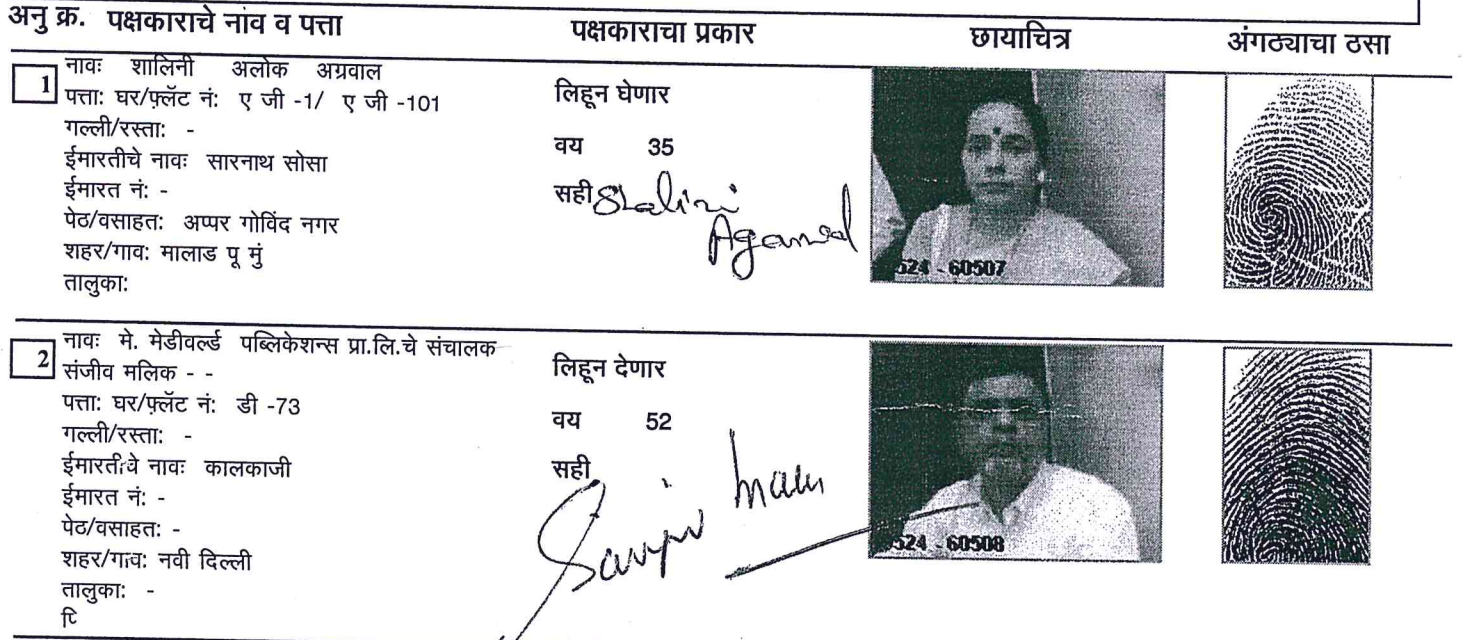 अनु क्र. पक्षकाराचे नांव व पत्ता पक्षकाराचा प्रकार छायाचित्र अंगठ्याचा ठसा
1
नावः शालिनी अलोक अग्रवाल
पत्ता: घर/फ़्लॅट नं: ए जी -1/ ए जी -101
गल्ली/रस्ता: -
ईमारतीचे नावः सारनाथ सोसा
ईमारत नं: -
पेठ/वसाहत: अप्पर गोविंद नगर
शहर/गाव: मालाड पू मुं
तालुका:
लिहून घेणार
वय 35
सही
Shalini
Agarwal
524 - 60507
2
नावः मे. मेडीवर्ल्ड पब्लिकेशन्स प्रा.लि.चे संचालक
संजीव मलिक - -
पत्ता: घर/फ़्लॅट नं: डी -73
गल्ली/रस्ता: -
ईमारतीचे नावः कालकाजी
ईमारत नं: -
पेठ/वसाहत: -
शहर/गाव: नवी दिल्ली
तालुका: -
पि
लिहून देणार
वय 52
सही
524 - 60508